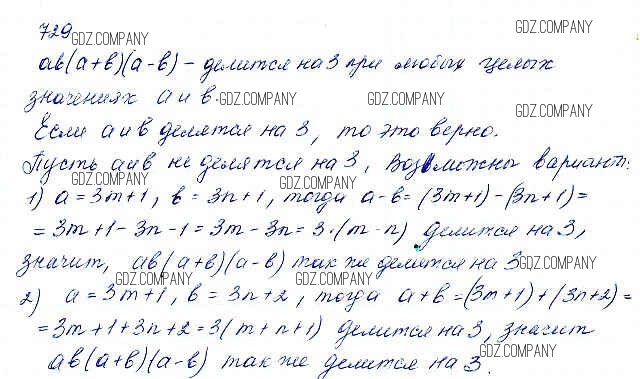 729
GDZ.COMPANY GDZ.COMPANY
ab(a+b)(a-b) - делится на 3 при любых целых
значениях a и b.
GDZ.COMPANY GDZ.COMPANY GDZ.COMPANY
Если a и b делятся на 3, то это верно.
Пусть a и b не делятся на 3, Возможны вариант:
GDZ.COMPANY GDZ.COMPANY GDZ.COMPANY
1) a = 3m+1, b = 3n+1, тогда a-b = (3m+1) - (3n+1) =
= 3m+1-3n-1 = 3m-3n = 3·(m-n) делится на 3,
значит, ab(a+b)(a-b) так же делится на 3
GDZ.COMPANY GDZ.COMPANY GDZ.COMPANY
2) a = 3m+1, b = 3n+2, тогда a+b = (3m+1) + (3n+2) =
= 3m+1+3n+2 = 3(m+n+1) делится на 3, значит
ab(a+b)(a-b) так же делится на 3.
GDZ.COMPANY